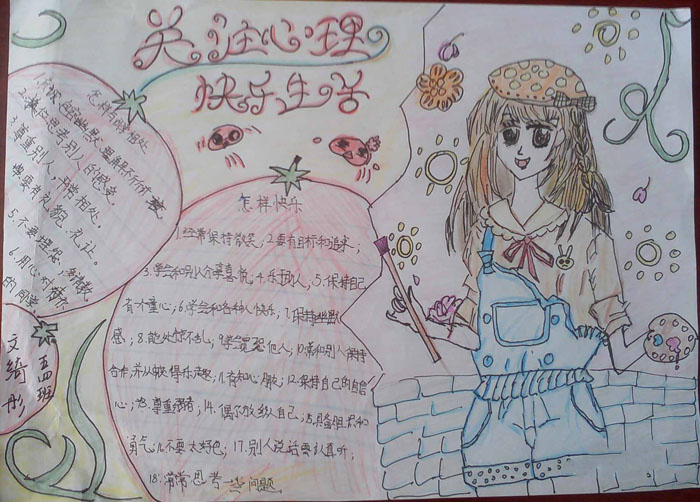 关注心理
快乐生活
怎样与同学相处
3.尊重别人,平常相处,
要有礼貌,礼让。
6.用心对待你
的同学。
五四班
文绮彤
怎样快乐
1.经常保持微笑;2.要有目标和追求;
3.学会和别人分享喜悦;4.乐于助人;5.保持自己
有个童心;6.学会和各种人快乐;7.保持幽默
感;8.能处惊不乱;9.学会宽恕他人;10.常和别人保持
合作,并从中获得乐趣;11.有知心朋友;12.保持自己的自信
心;13.尊重弱者;14.偶尔放纵自己;15.具备胆识和
勇气;16.不要太好色;17.别人说话要认真听;
18.常常思考一些问题。